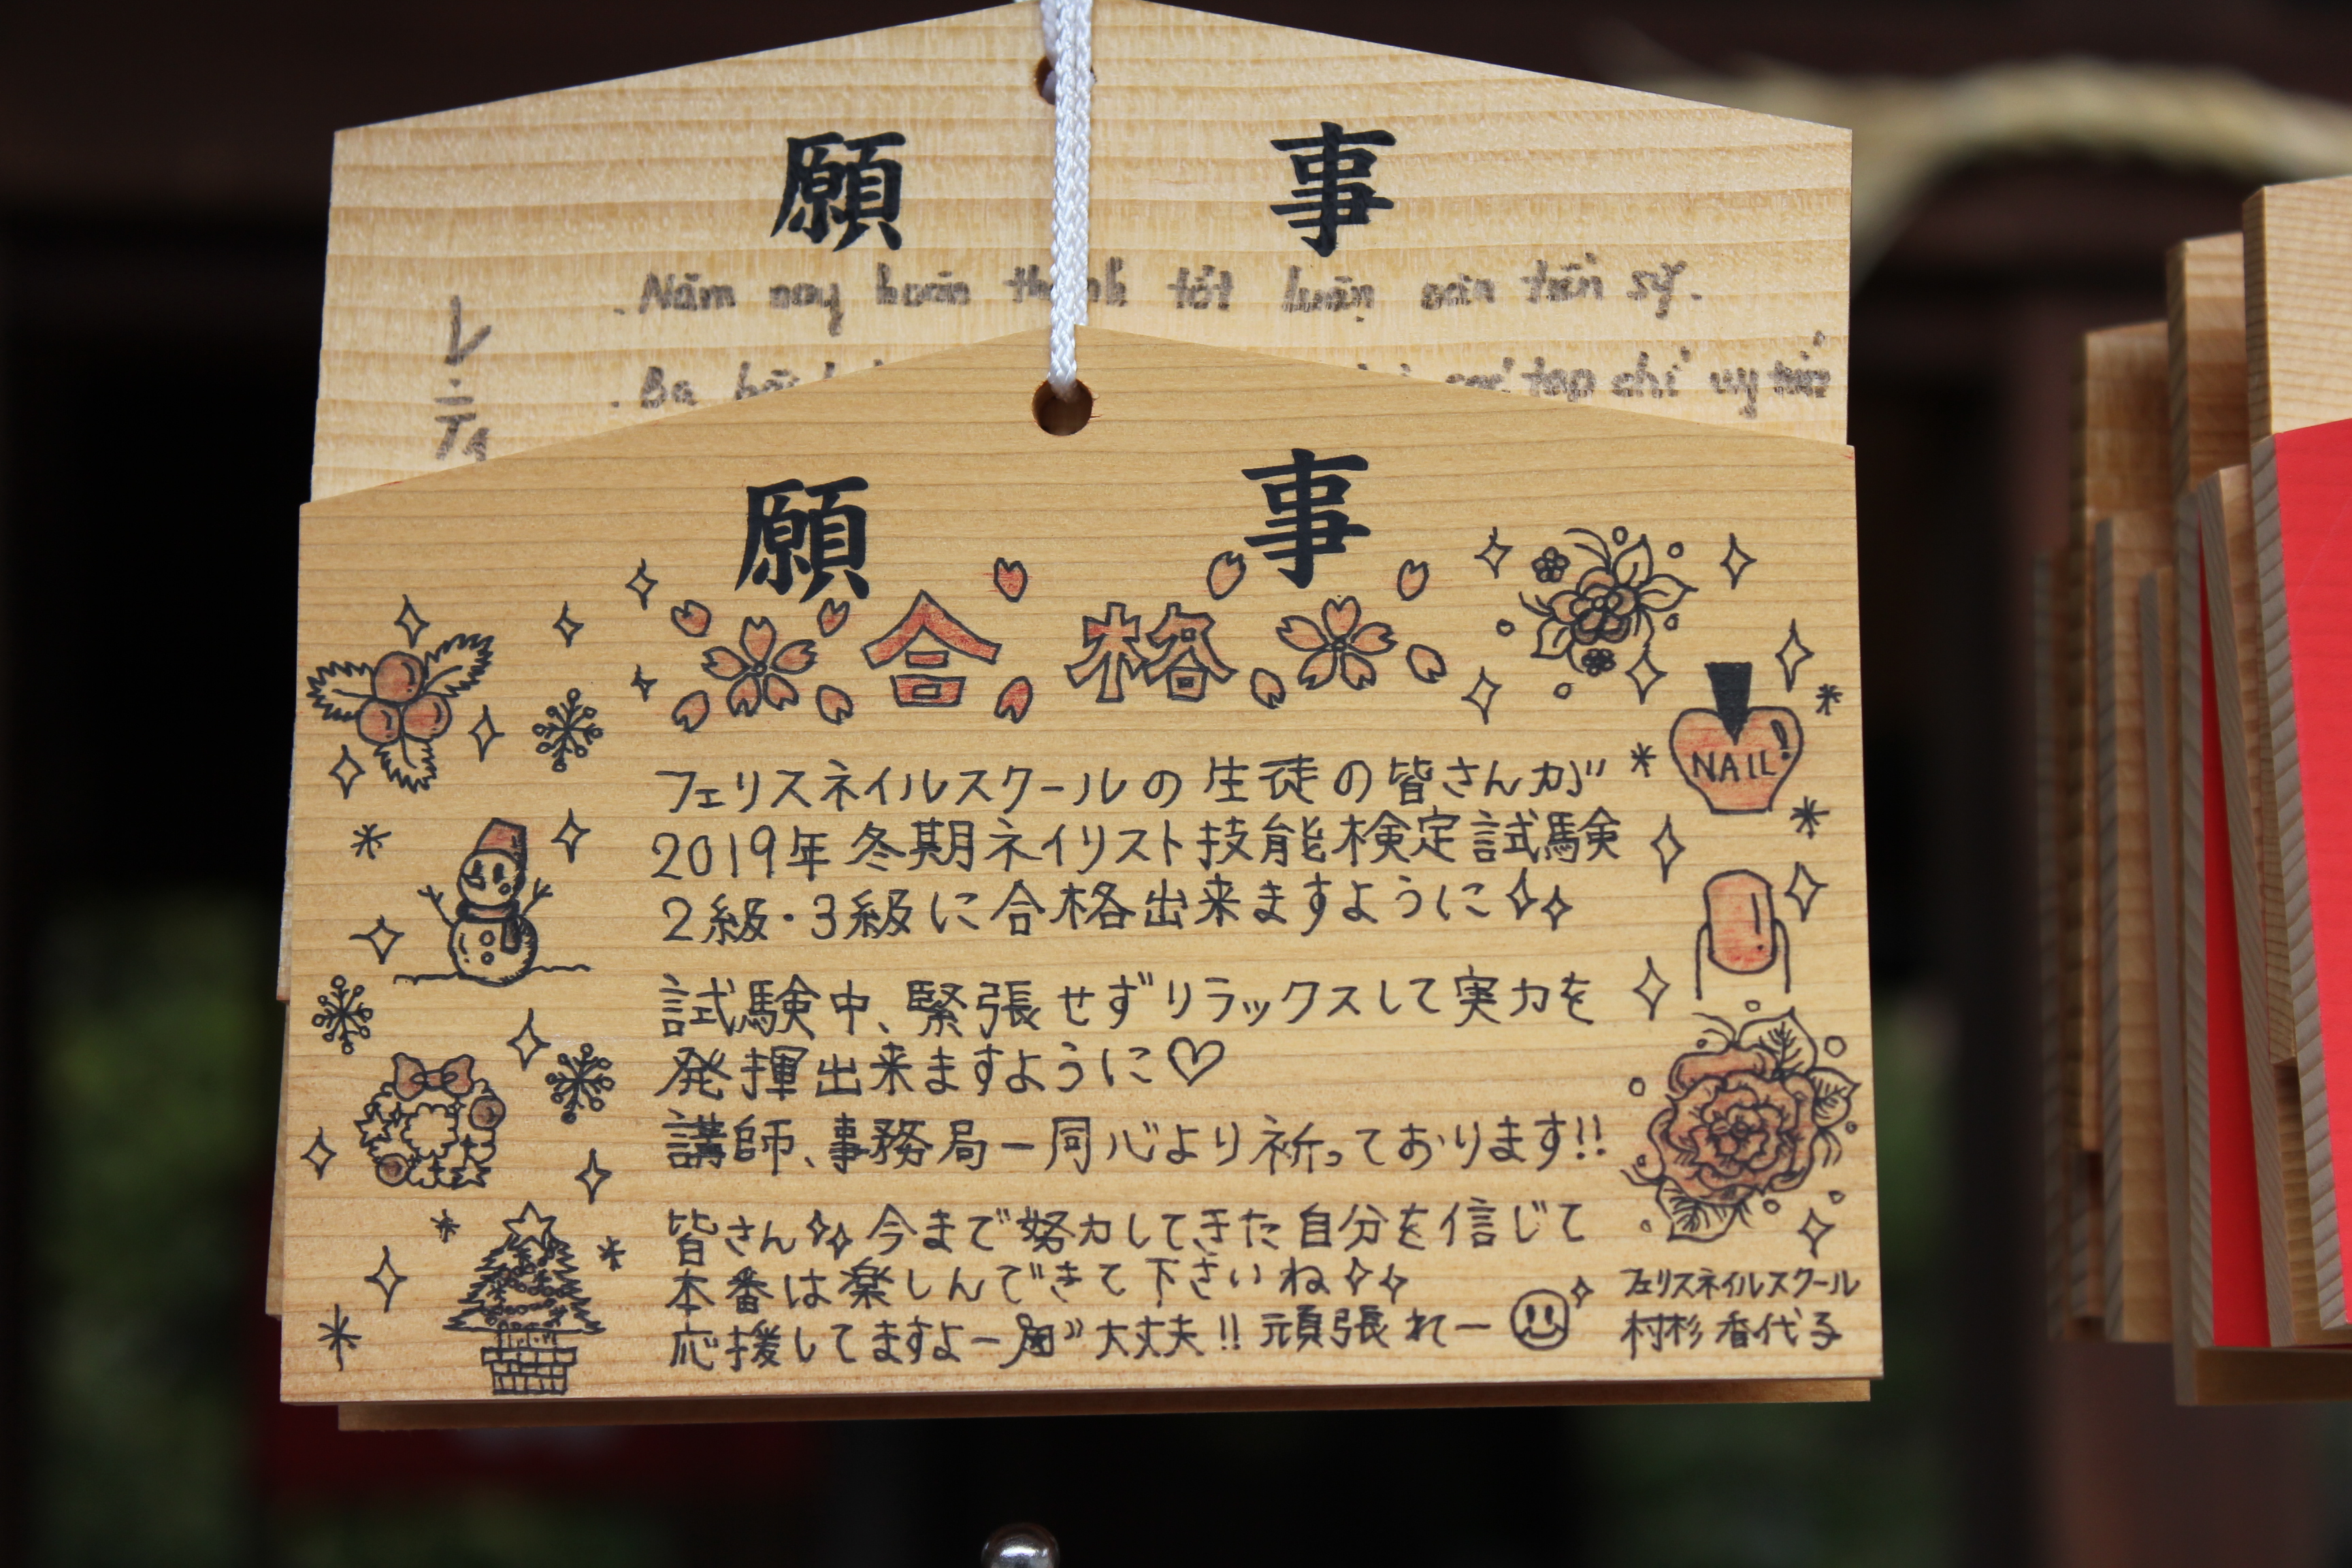 願 事
Năm nay hoàn thành tốt luận văn tiến sỹ.
Ba
tạp chí uy tín
願 事
合 格
NAIL
フェリスネイルスクールの生徒の皆さんが
2019年冬期ネイリスト技能検定試験
2級・3級に合格出来ますように
試験中、緊張せずリラックスして実力を
発揮出来ますように♡
講師、事務局一同心より祈っております!!
皆さん 今まで努力してきた自分を信じて
本番は楽しんできて下さいね
応援してますよー 大丈夫!! 頑張れー
フェリスネイルスクール
村杉香代子